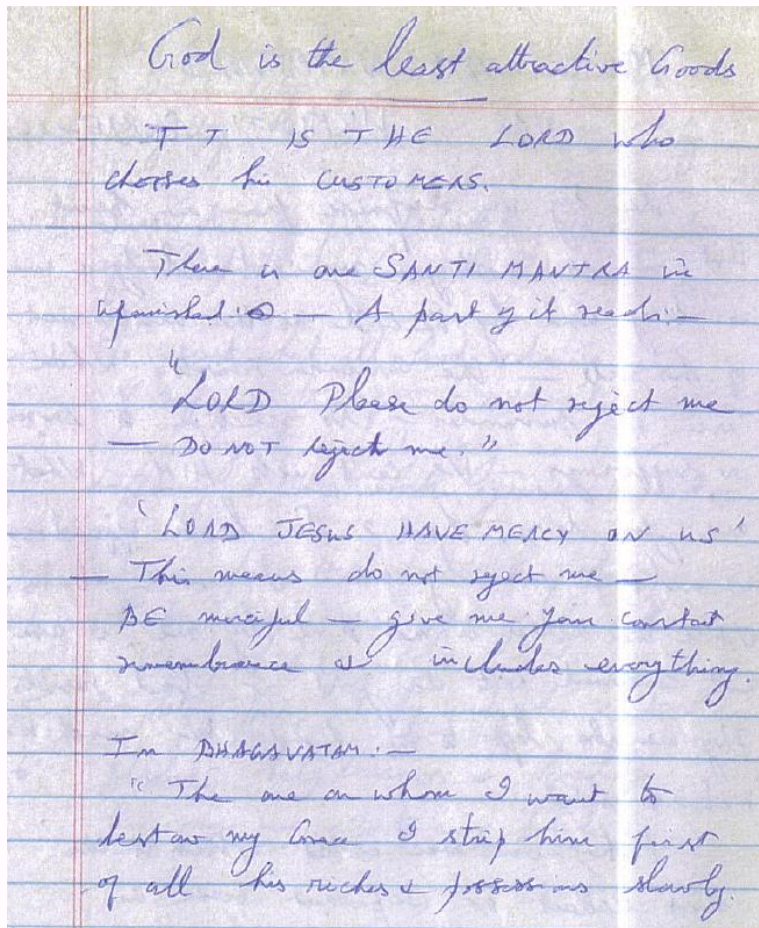 God is the least attractive Goods
IT IS THE LORD who
chooses his CUSTOMERS.
There is one SANTI MANTRA in
upanishad :- A part of it reads :-
"LORD Please do not reject me
- DO NOT reject me."
'LORD JESUS HAVE MERCY ON US'
- This means do not reject me -
BE merciful - give me your constant
remembrance & includes everything.
In BHAGAVATAM :-
"The one on whom I want to
bestow my Grace I strip him first
of all his riches & possessions slowly.